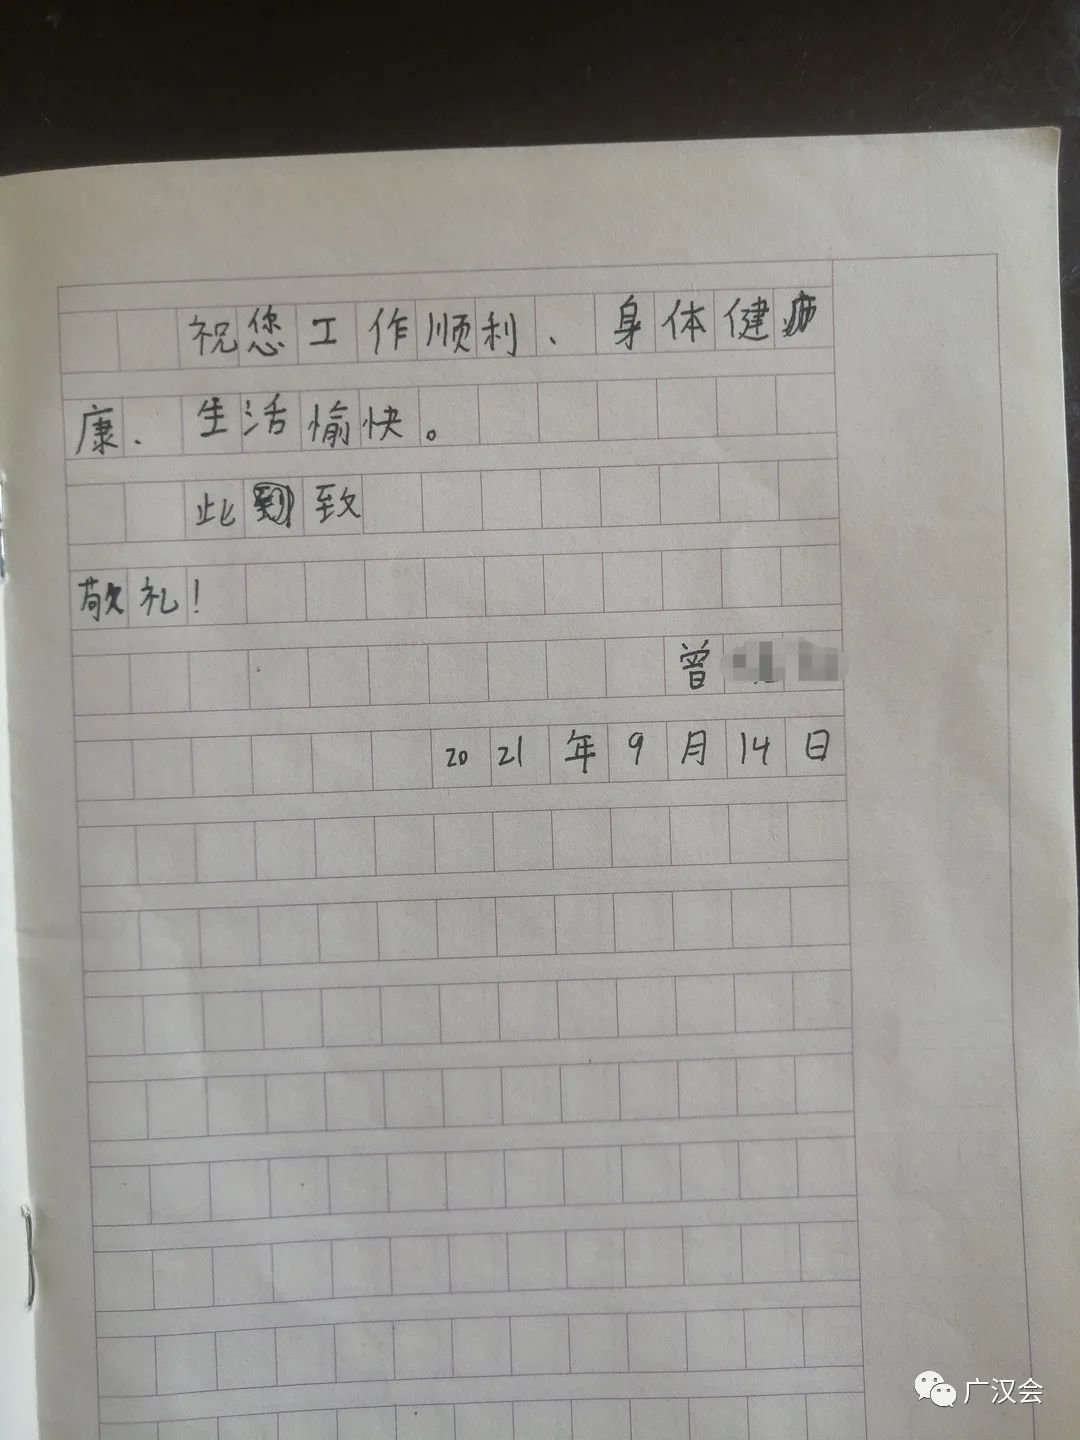 祝您工作顺利、身体健
康、生活愉快。
此致
敬礼！
曾
2021年9月14日
广汉会